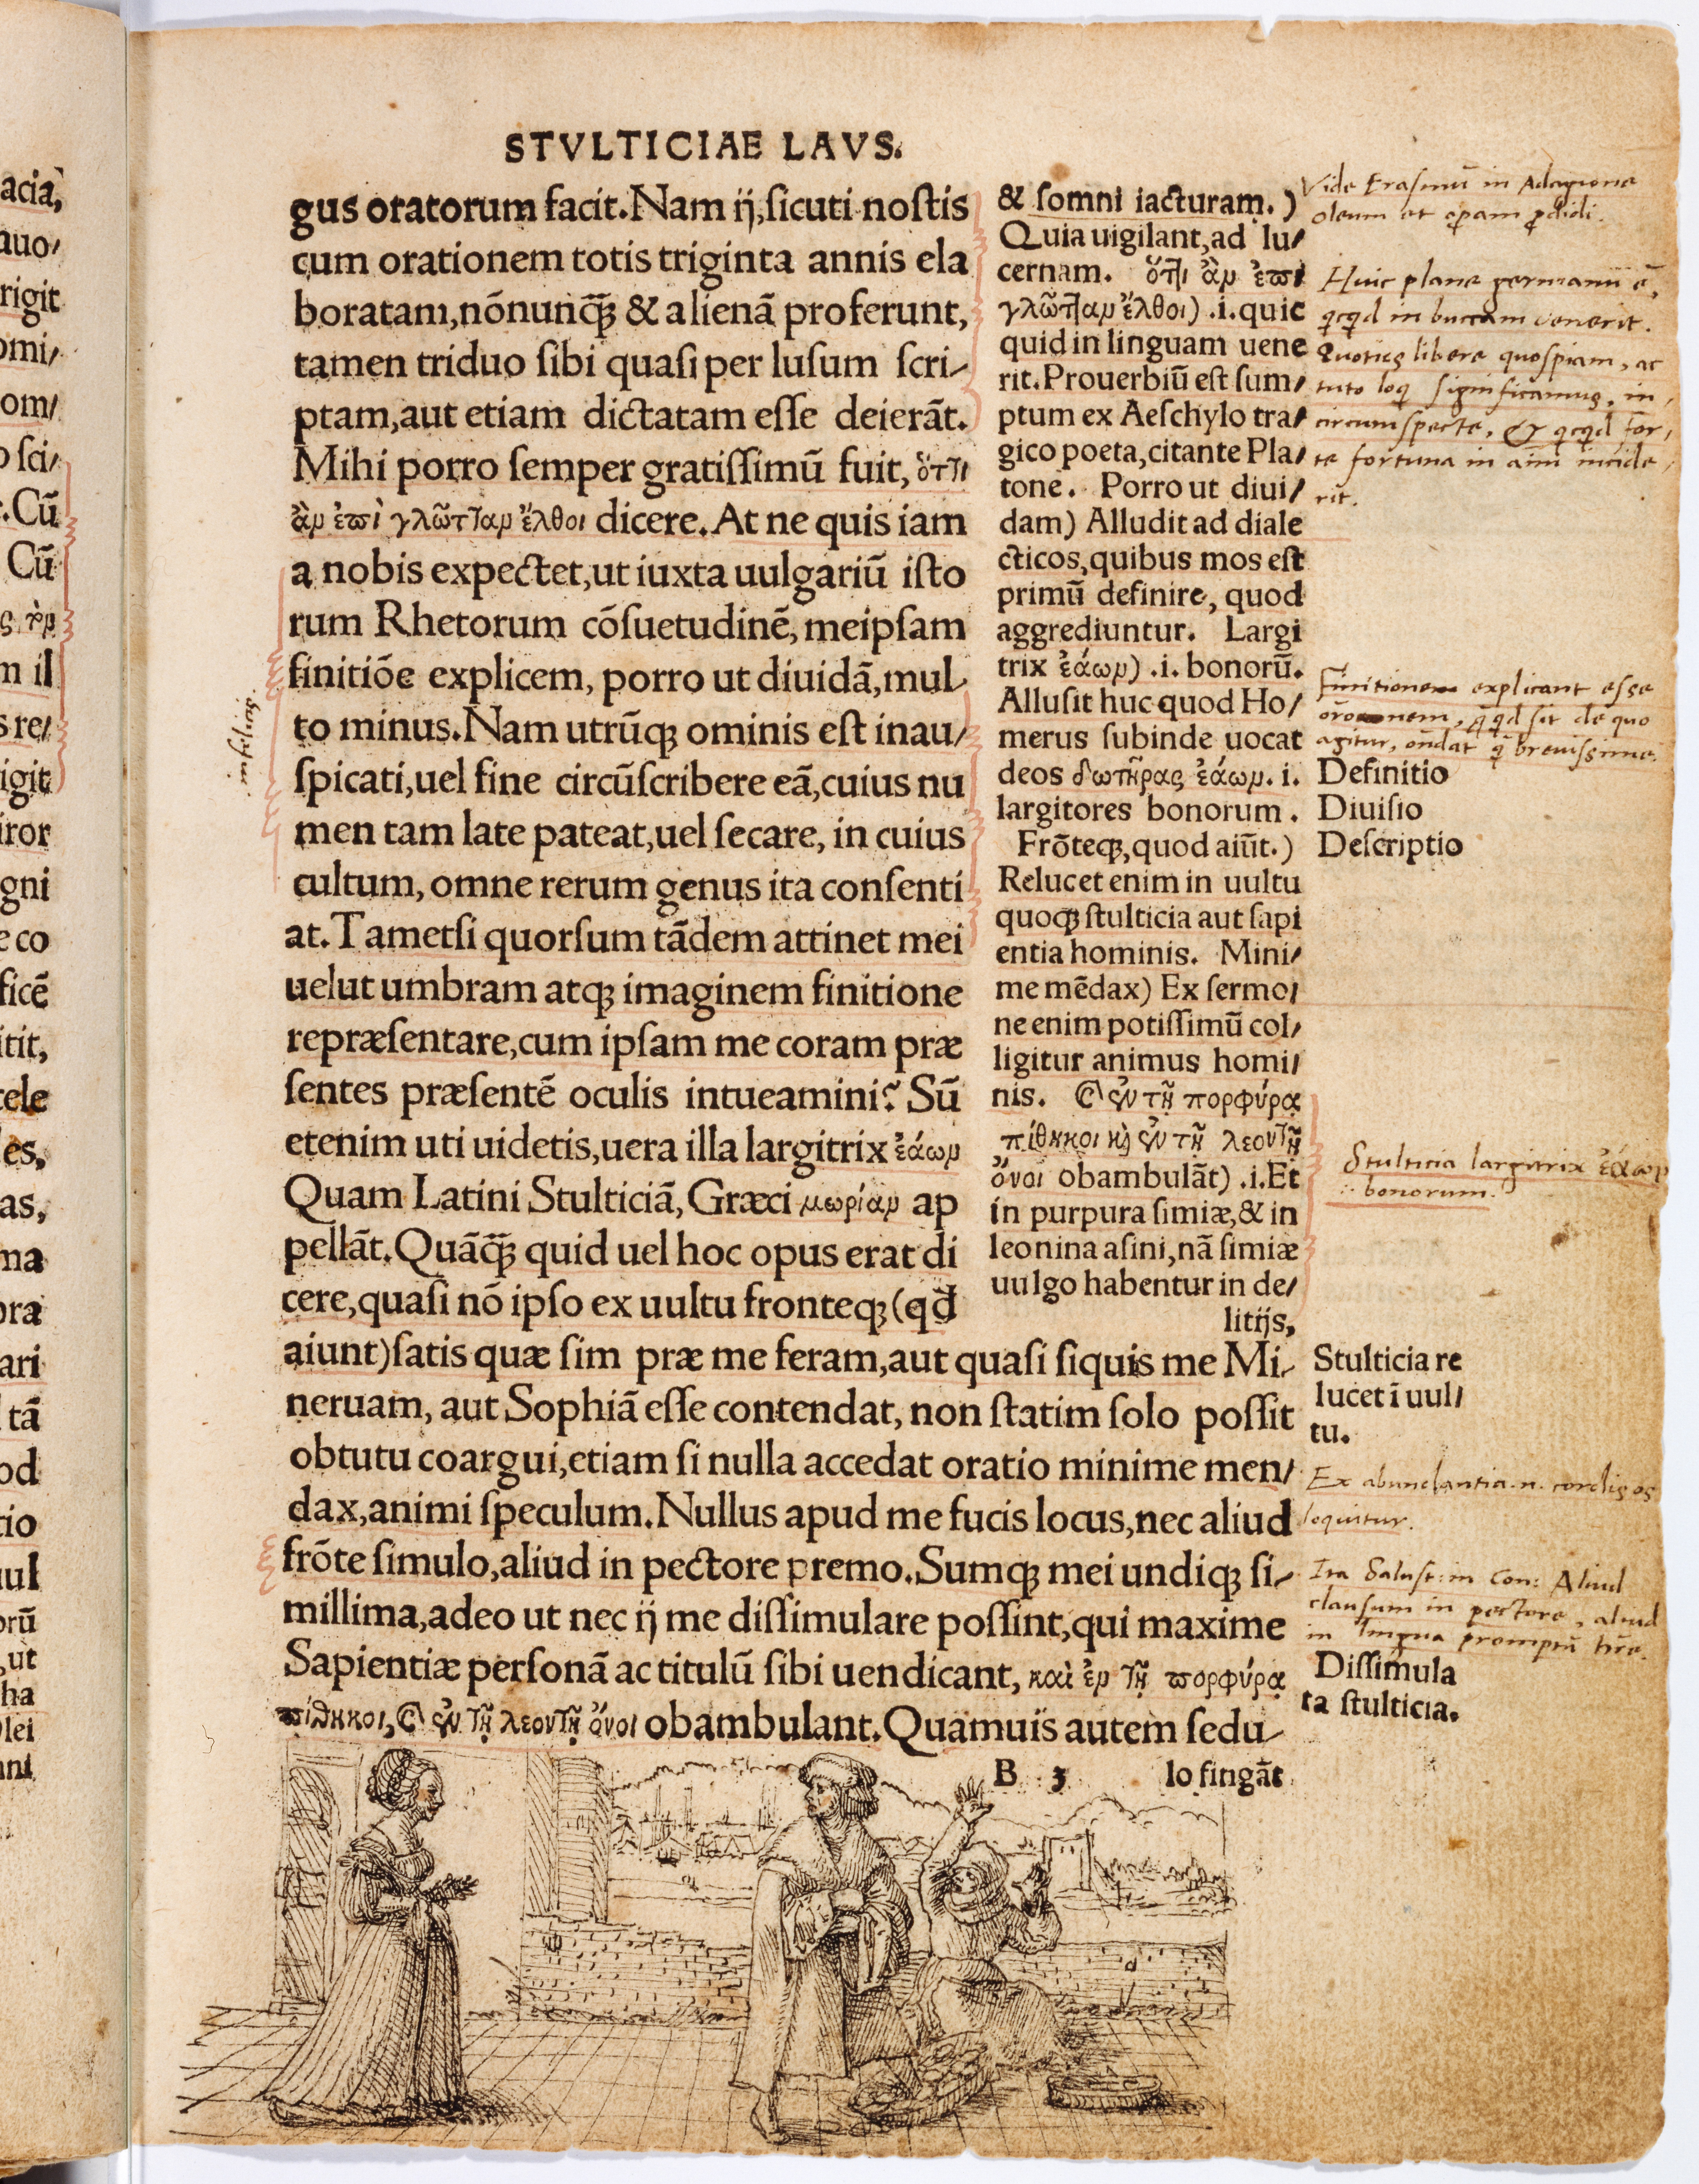 STVLTICIAE LAVS.
gus oratorum facit. Nam ij, sicuti nostis
cum orationem totis triginta annis ela
boratam, nõnunq̃ꝫ & alienã proferunt,
tamen triduo sibi quasi per lusum scri-
ptam, aut etiam dictatam esse deierãt.
Mihi porro semper gratissimũ fuit, ὅτ̓ι
ἂν ἐπὶ γλῶτ̓αν ἔλθοι dicere. At ne quis iam
a nobis expectet, ut iuxta uulgariũ isto
rum Rhetorum cõsuetudinẽ, meipsam
finitiõe explicem, porro ut diuidã, mul-
to minus. Nam utrũqꝫ ominis est inau/
spicati, uel fine circũscribere eã, cuius nu
men tam late pateat, uel secare, in cuius
cultum, omne rerum genus ita consenti
at. Tametsi quorsum tãdem attinet mei
uelut umbram atqꝫ imaginem finitione
repræsentare, cum ipsam me coram præ
sentes præsentẽ oculis intueamini? Sũ
etenim uti uidetis, uera illa largitrix ἐάων
Quam Latini Stulticiã, Græci μωρίαν ap
pellãt. Quãq̃ꝫ quid uel hoc opus erat di
cere, quasi nõ ipso ex uultu fronteqꝫ (qd̃
aiunt) satis quæ sim præ me feram, aut quasi siquis me Mi-
neruam, aut Sophiã esse contendat, non statim solo possit
obtutu coargui, etiam si nulla accedat oratio minime men/
dax, animi speculum. Nullus apud me fucis locus, nec aliud
frõte simulo, aliud in pectore premo. Sumqꝫ mei undiqꝫ si-
millima, adeo ut nec ij me dissimulare possint, qui maxime
Sapientiæ personã ac titulũ sibi uendicant, καὶ ἐν τῇ πορφύρᾳ
πίθηκοι, Ϗ ἐν τῇ λεοντῇ ὄνοι obambulant. Quamuis autem sedu-
B 3 lo fingãt
& somni iacturam.)
Quia uigilant, ad lu/
cernam. ὅτ̓ι ἂν ἐπὶ
γλῶτ̓αν ἔλθοι) .i. quic
quid in linguam uene
rit. Prouerbiũ est sum/
ptum ex Aeschylo tra/
gico poeta, citante Pla/
tone. Porro ut diui/
dam) Alludit ad diale
cticos, quibus mos est
primũ definire, quod
aggrediuntur. Largi
trix ἐάων) .i. bonorũ.
Allusit huc quod Ho/
merus subinde uocat
deos δωτῆρας ἐάων. i.
largitores bonorum.
Frõteqꝫ, quod aiũt.)
Relucet enim in uultu
quoqꝫ stulticia aut sapi
entia hominis. Mini/
me mẽdax) Ex sermo/
ne enim potissimũ col/
ligitur animus homi/
nis. Ϗ ἐν τῇ πορφύρᾳ
πίθηκοι κὶ ἐν τῇ λεοντῇ
ὄνοι obambulãt) .i. Et
in purpura simiæ, & in
leonina asini, nã simiæ
uulgo habentur in de/
litijs,
Vide Erasmũ in Adagione
oleum et opam pdidi.
Huic plane germanũ ẽ,
qcqd in buccam venerit.
Quoties libere quospiam, ac
tuto loq significamus, in,
circumspecte, & qcqd for,
te fortuna in aim incide,
rit.
infelicis.
Finitionem explicant esse
oronem, q̃ qd sit de quo
agitur, ondat q̃ brevissime.
Definitio
Diuisio
Descriptio
Stulticia largitrix ἐάων
bonorum.
Stulticia re
lucet ĩ uul/
tu.
Ex abundantia .n. cordis os
loquitur.
Ita Salust: in Con: Aliud
clausum in pectore, aliud
in lingua promptũ hr̃e.
Dissimula
ta stulticia.
acia,
auo/
rigit
omi/
om/
o sci/
. Cũ
Cũ
ς τὸν
m il
s re/
igit
iror
gni
e co
ficẽ
itit,
tele
les,
as,
ma
ora
ari
tã
od
tio
uul
orũ
, ut
ha
lei
ani